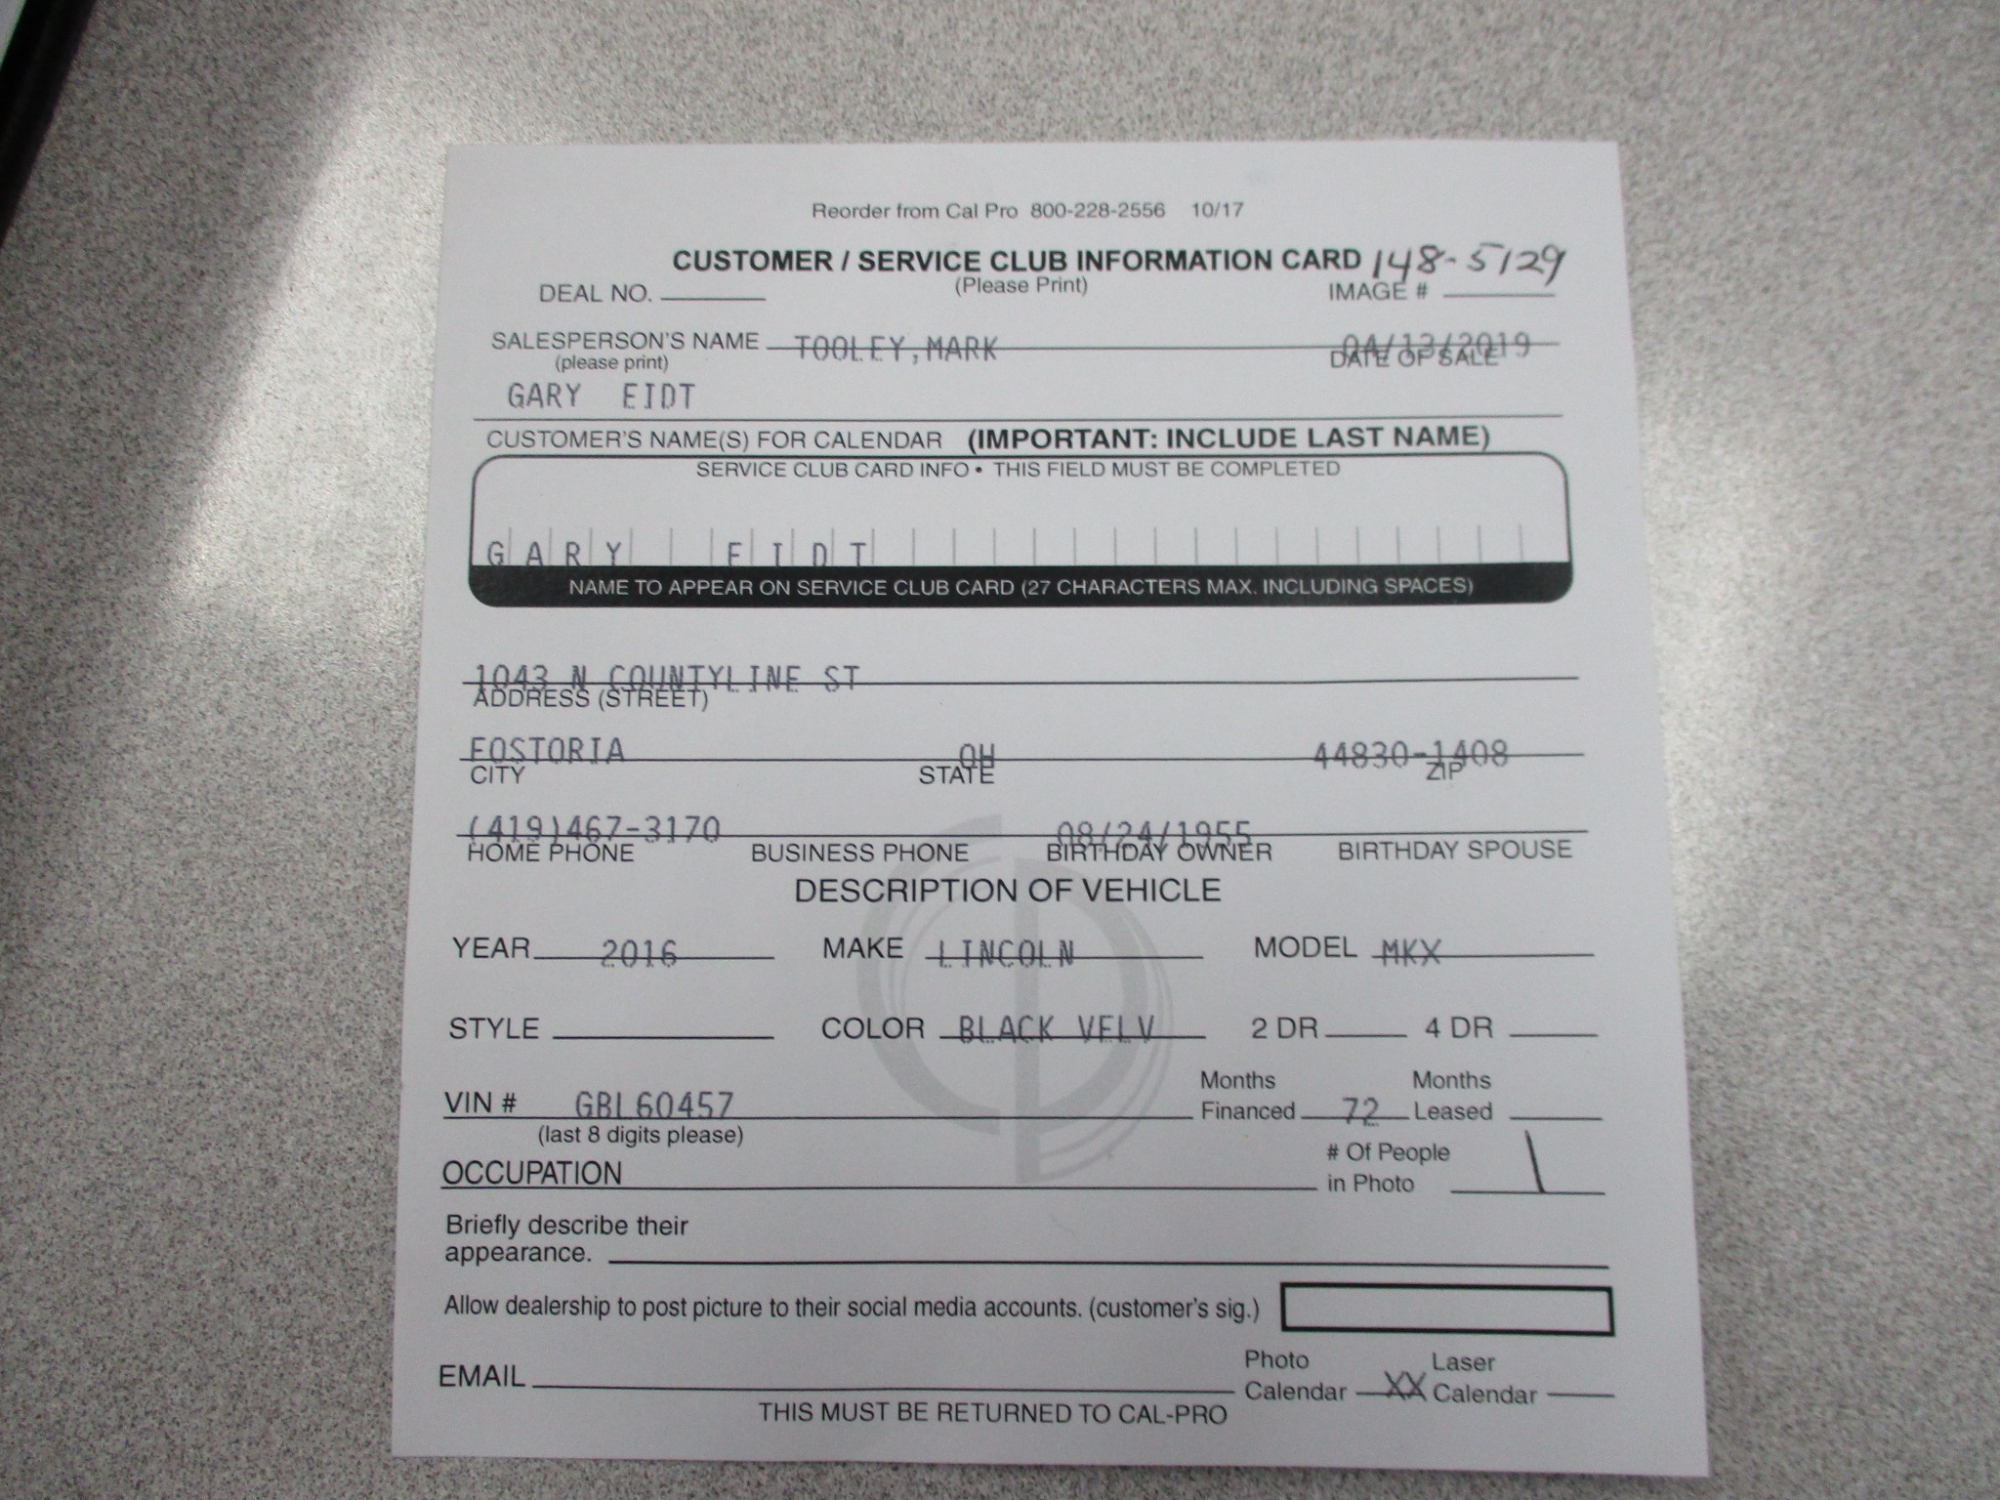 Reorder from Cal Pro 800-228-2556 10/17
CUSTOMER / SERVICE CLUB INFORMATION CARD 148-5129
DEAL NO. (Please Print) IMAGE #
SALESPERSON'S NAME TOOLEY,MARK 04/13/2019
(please print) DATE OF SALE
GARY EIDT
CUSTOMER'S NAME(S) FOR CALENDAR (IMPORTANT: INCLUDE LAST NAME)
SERVICE CLUB CARD INFO • THIS FIELD MUST BE COMPLETED
GARY EIDT
NAME TO APPEAR ON SERVICE CLUB CARD (27 CHARACTERS MAX. INCLUDING SPACES)
1043 N COUNTYLINE ST
ADDRESS (STREET)
FOSTORIA OH 44830-1408
CITY STATE ZIP
(419)467-3170 08/24/1955
HOME PHONE BUSINESS PHONE BIRTHDAY OWNER BIRTHDAY SPOUSE
DESCRIPTION OF VEHICLE
YEAR 2016 MAKE LINCOLN MODEL MKX
STYLE COLOR BLACK VELV 2 DR 4 DR
Months Months
VIN # GBL60457 Financed 72 Leased
(last 8 digits please)
# Of People
OCCUPATION in Photo 1
Briefly describe their
appearance.
Allow dealership to post picture to their social media accounts. (customer's sig.)
Photo Laser
EMAIL Calendar XX Calendar
THIS MUST BE RETURNED TO CAL-PRO